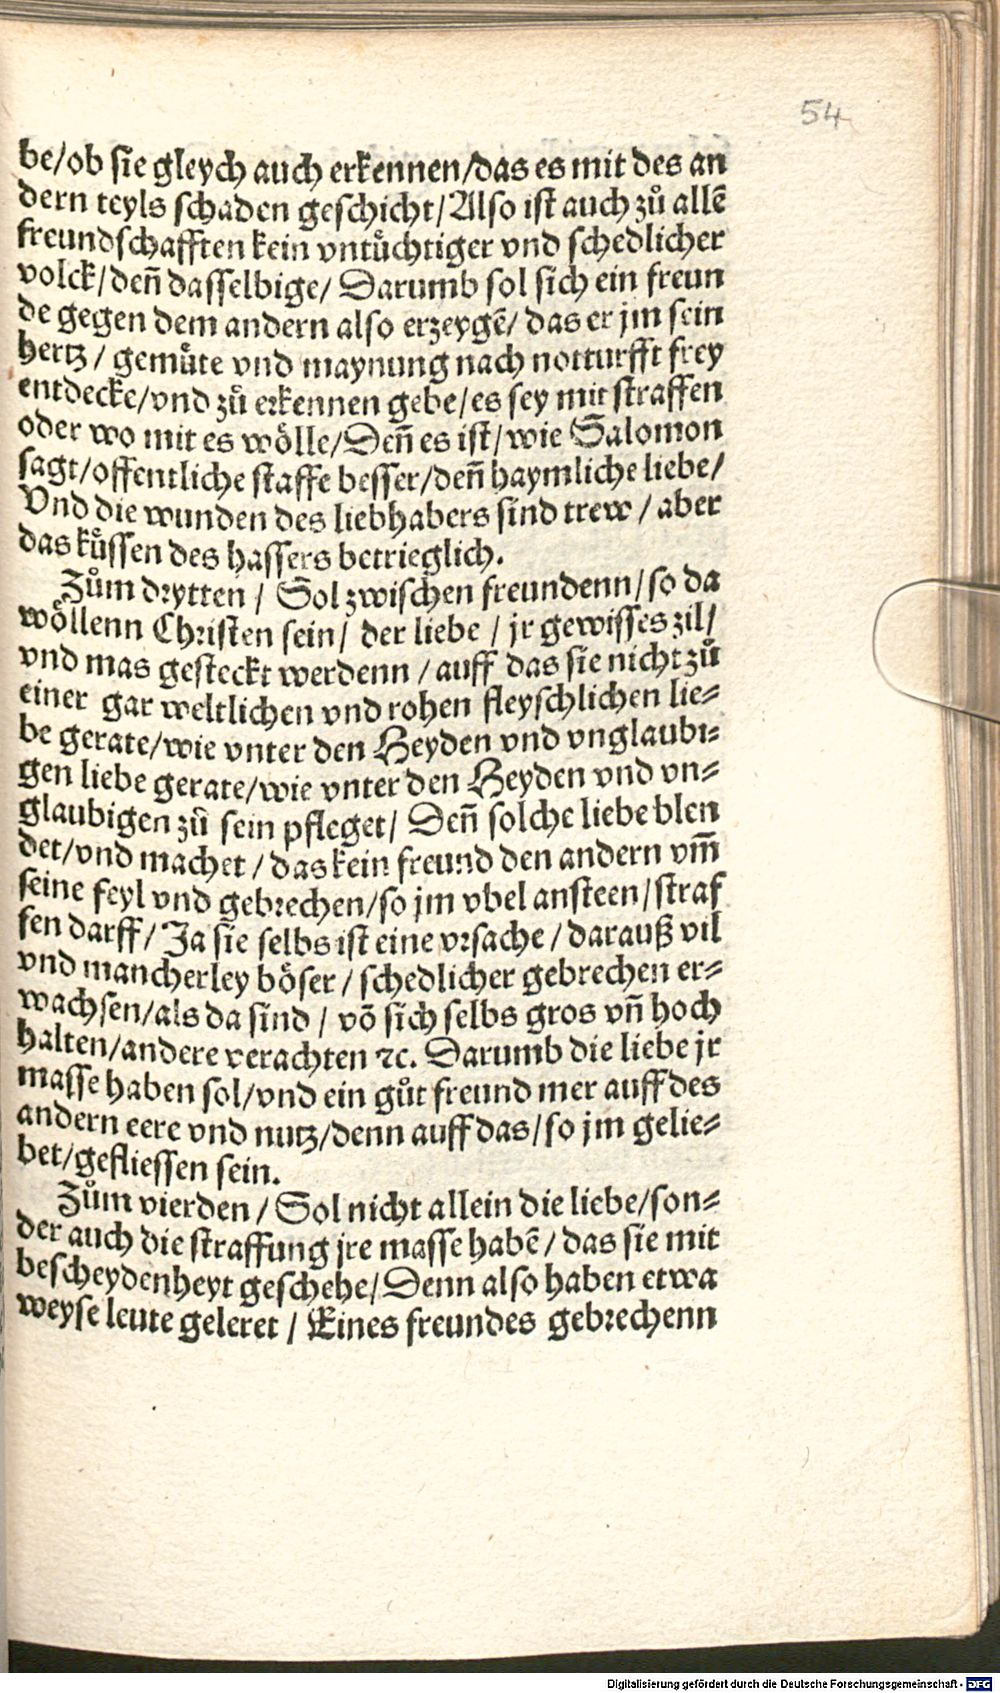 54
be/ob sie gleych auch erkennen/das es mit des an
dern teyls schaden geschicht/Also ist auch zů allē
freundschafften kein vntüchtiger vnd schedlicher
volck/deñ dasselbige/ Darumb sol sich ein freun
de gegen dem andern also erzeygē/ das er jm sein
hertz / gemüte vnd maynung nach notturfft frey
entdecke/vnd zů erkennen gebe/es sey mit straffen
oder wo mit es wölle/Deñ es ist/wie Salomon
sagt/offentliche staffe besser/deñ haymliche liebe/
Vnd die wunden des liebhabers sind trew / aber
das küssen des hassers betrieglich.
Zům drytten / Sol zwischen freundenn/so da
wöllenn Christen sein/ der liebe / jr gewisses zil/
vnd mas gesteckt werdenn / auff das sie nicht zů
einer gar weltlichen vnd rohen fleyschlichen lie⸗
be gerate/wie vnter den Heyden vnd vnglaubi⸗
gen liebe gerate/wie vnter den Heyden vnd vn⸗
glaubigen zů sein pfleget/ Deñ solche liebe blen
det/vnd machet / das kein freund den andern vm̃
seine feyl vnd gebrechen/so jm vbel ansteen/straf
fen darff/ Ja sie selbs ist eine vrsache / darauß vil
vnd mancherley böser / schedlicher gebrechen er⸗
wachsen/als da sind / võ sich selbs gros vñ hoch
halten/andere verachten ꝛc. Darumb die liebe jr
masse haben sol/vnd ein gůt freund mer auff des
andern eere vnd nutz/denn auff das/so jm gelie⸗
bet/gefliessen sein.
Zům vierden / Sol nicht allein die liebe/son⸗
der auch die straffung jre masse habē / das sie mit
bescheydenheyt geschehe/Denn also haben etwa
weyse leute geleret / Eines freundes gebrechenn
Digitalisierung gefördert durch die Deutsche Forschungsgemeinschaft - DFG